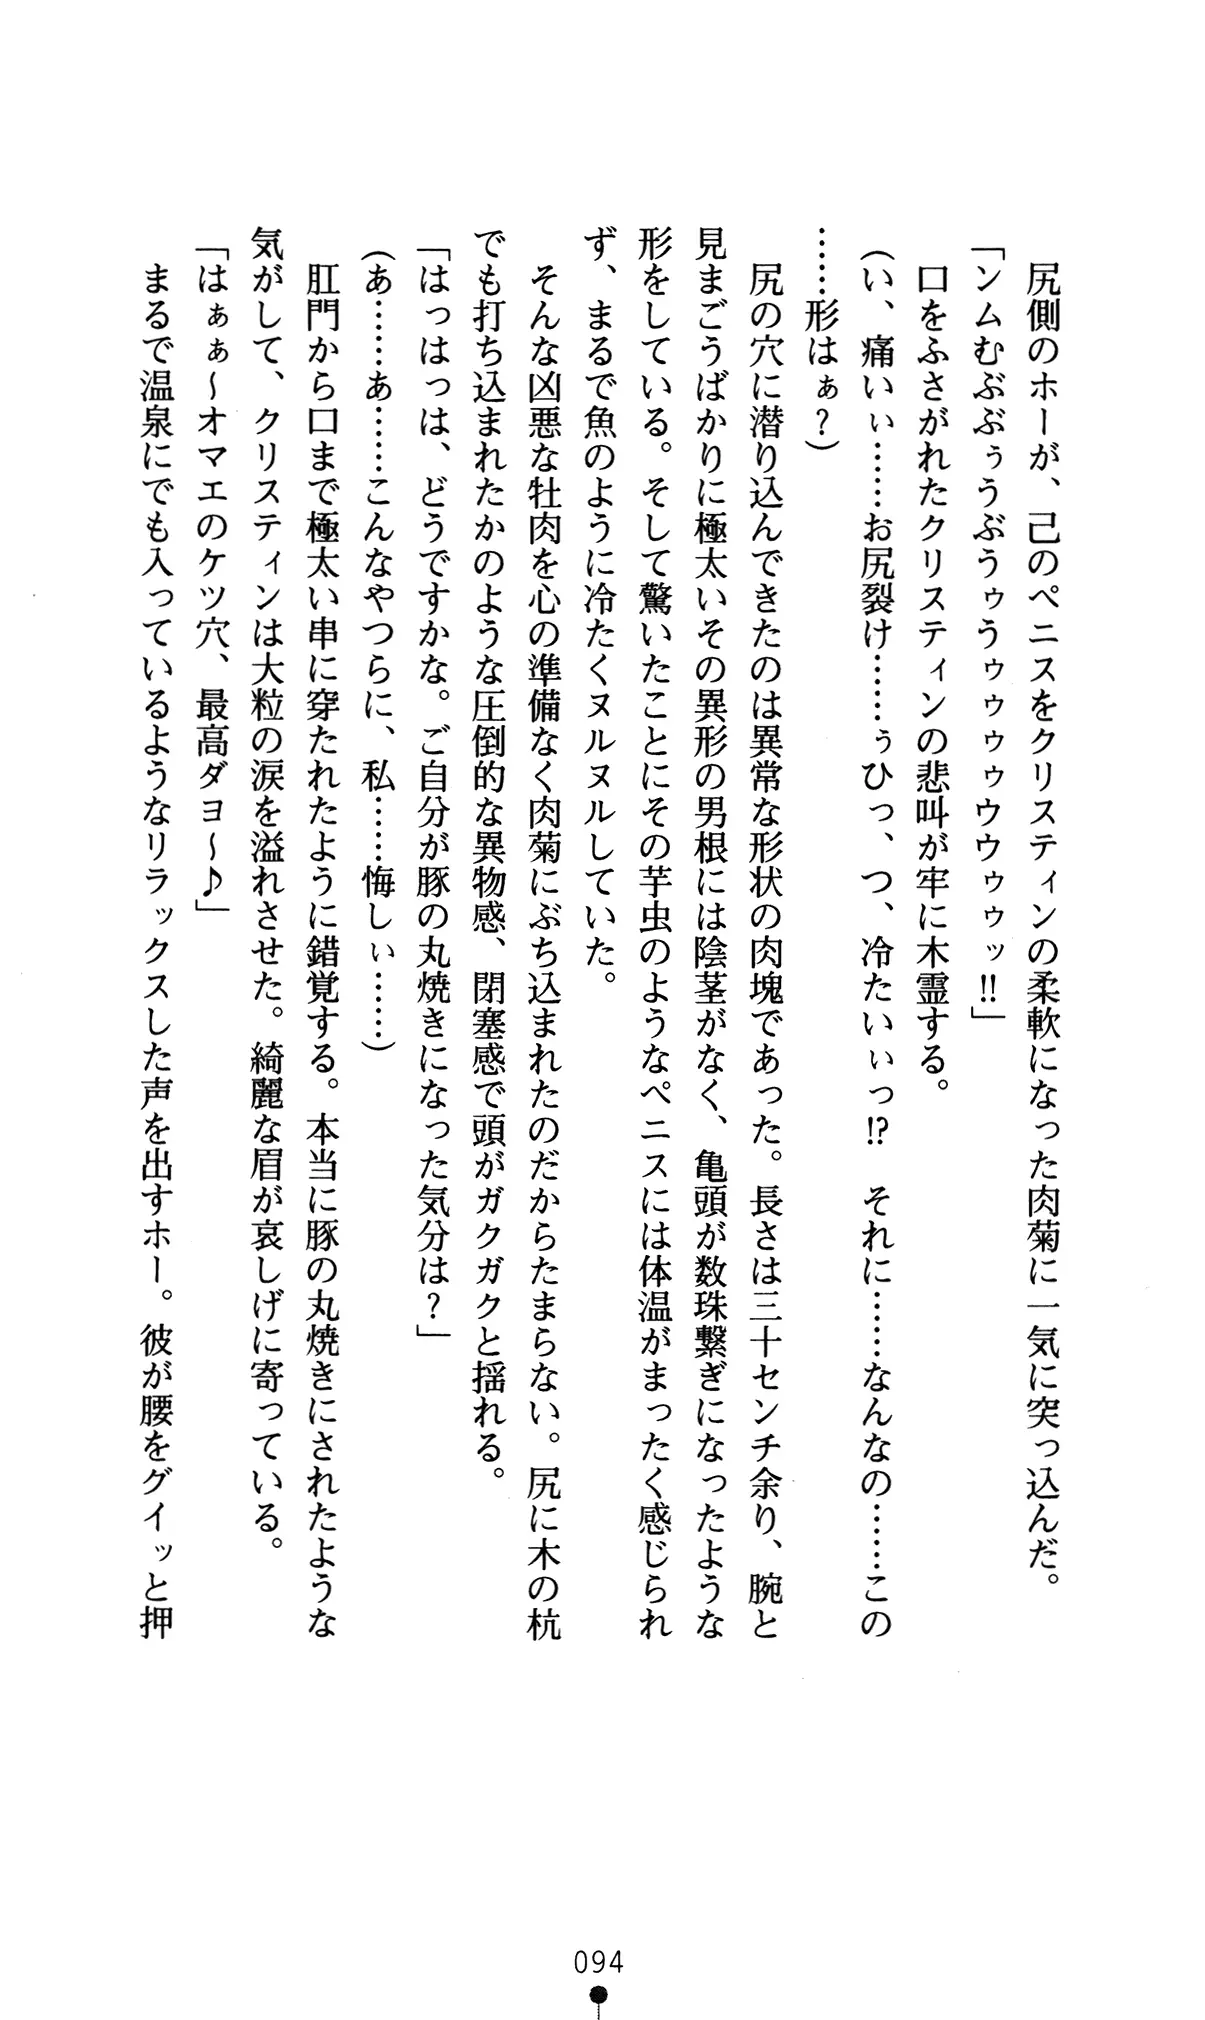 尻側のホーが、己のペニスをクリスティンの柔軟になった肉菊に一気に突っ込んだ。
「ンムむぶぶぅうぶうゥうゥゥゥゥウウゥゥッ!!」
口をふさがれたクリスティンの悲叫が牢に木霊する。
（い、痛いぃ……お尻裂け……ぅひっ、つ、冷たいぃっ!?　それに……なんなの……この
……形はぁ？）
尻の穴に潜り込んできたのは異常な形状の肉塊であった。長さは三十センチ余り、腕と
見まごうばかりに極太いその異形の男根には陰茎がなく、亀頭が数珠繋ぎになったような
形をしている。そして驚いたことにその芋虫のようなペニスには体温がまったく感じられ
ず、まるで魚のように冷たくヌルヌルしていた。
そんな凶悪な牡肉を心の準備なく肉菊にぶち込まれたのだからたまらない。尻に木の杭
でも打ち込まれたかのような圧倒的な異物感、閉塞感で頭がガクガクと揺れる。
「はっはっは、どうですかな。ご自分が豚の丸焼きになった気分は？」
（あ……あ……こんなやつらに、私……悔しぃ……）
肛門から口まで極太い串に穿たれたように錯覚する。本当に豚の丸焼きにされたような
気がして、クリスティンは大粒の涙を溢れさせた。綺麗な眉が哀しげに寄っている。
「はぁぁ～オマエのケツ穴、最高ダヨ～♪」
まるで温泉にでも入っているようなリラックスした声を出すホー。彼が腰をグイッと押
094